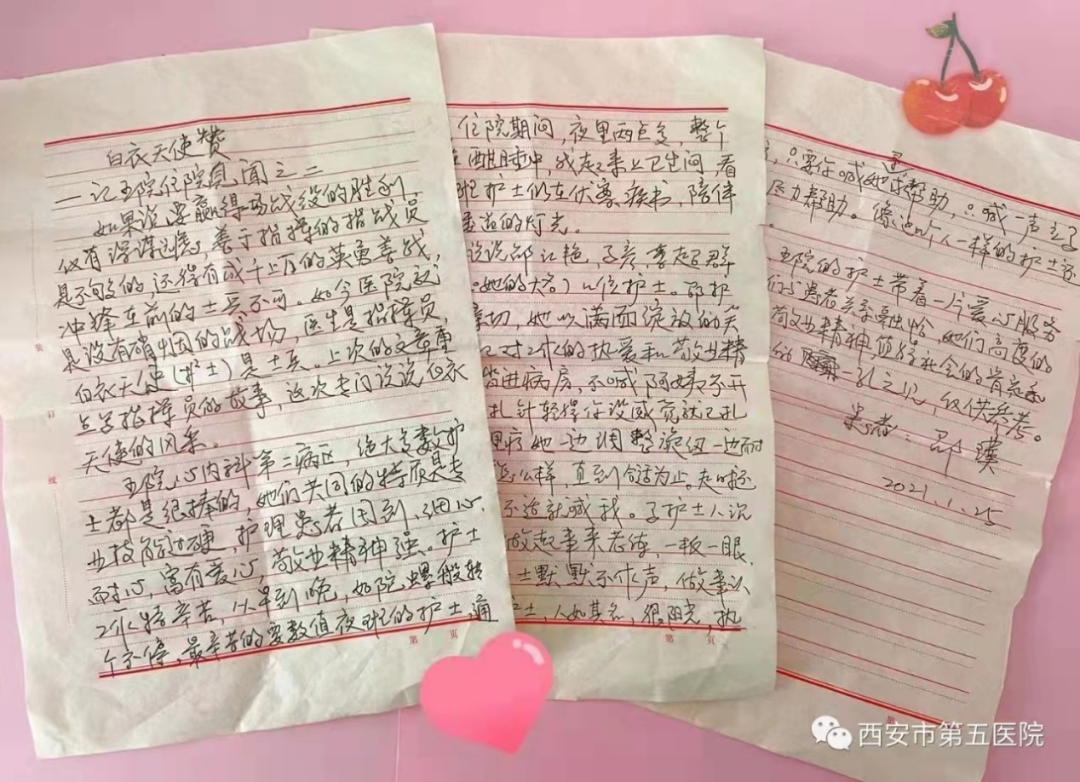 白衣天使赞
—记五院住院见闻之二
如果说要赢得一场战役的胜利,
仅有深谋远虑,善于指挥的指战员
是不够的,还得有成千上万的英勇善战,
冲锋在前的士兵不可。如今医院就
是没有硝烟的战场,医生是指挥员,
白衣天使(护士)是士兵。上次的文章重
点写指挥员的故事,这次专门说说白衣
天使的风采。
五院心内科第二病区,绝大多数护
士都是很棒的,她们共同的特质是专
业技能过硬,护理患者周到、细心、
耐心,富有爱心,敬业精神强。护士
工作特辛苦,从早到晚,如陀螺般转
个不停,最辛苦的要数值夜班的护士,通
住院期间,夜里两点多,整个
在酣睡中,我起来上卫生间,看
班护士仍在伏案疾书,陪伴
的灯光。
说说邵红艳,子彦,李超群
她的大名)几位护士。邵护
亲切,她以满面绽放的笑
对工作的热爱和敬业精
进病房,不喊阿姨不开
扎针轻得你没感觉就已扎
她一边调整滚钮一边问
怎么样,直到合适为止。走时还
不适就喊我。子护士人说
做起事来老练,一板一眼。
士默默不作声,做事认
士,人如其名,很阳光,热
,只要你喊她寻帮助,只喊一声立马
尽力帮助。像这听人一样的护士还
五院的护士带着一片爱心服务
们与患者关系融恰,她们高度的
敬业精神,值得社会的肯定和
一孔之见,仅供参考。
患者:邵璞
2021.1.25
第 页
第 页
西安市第五医院